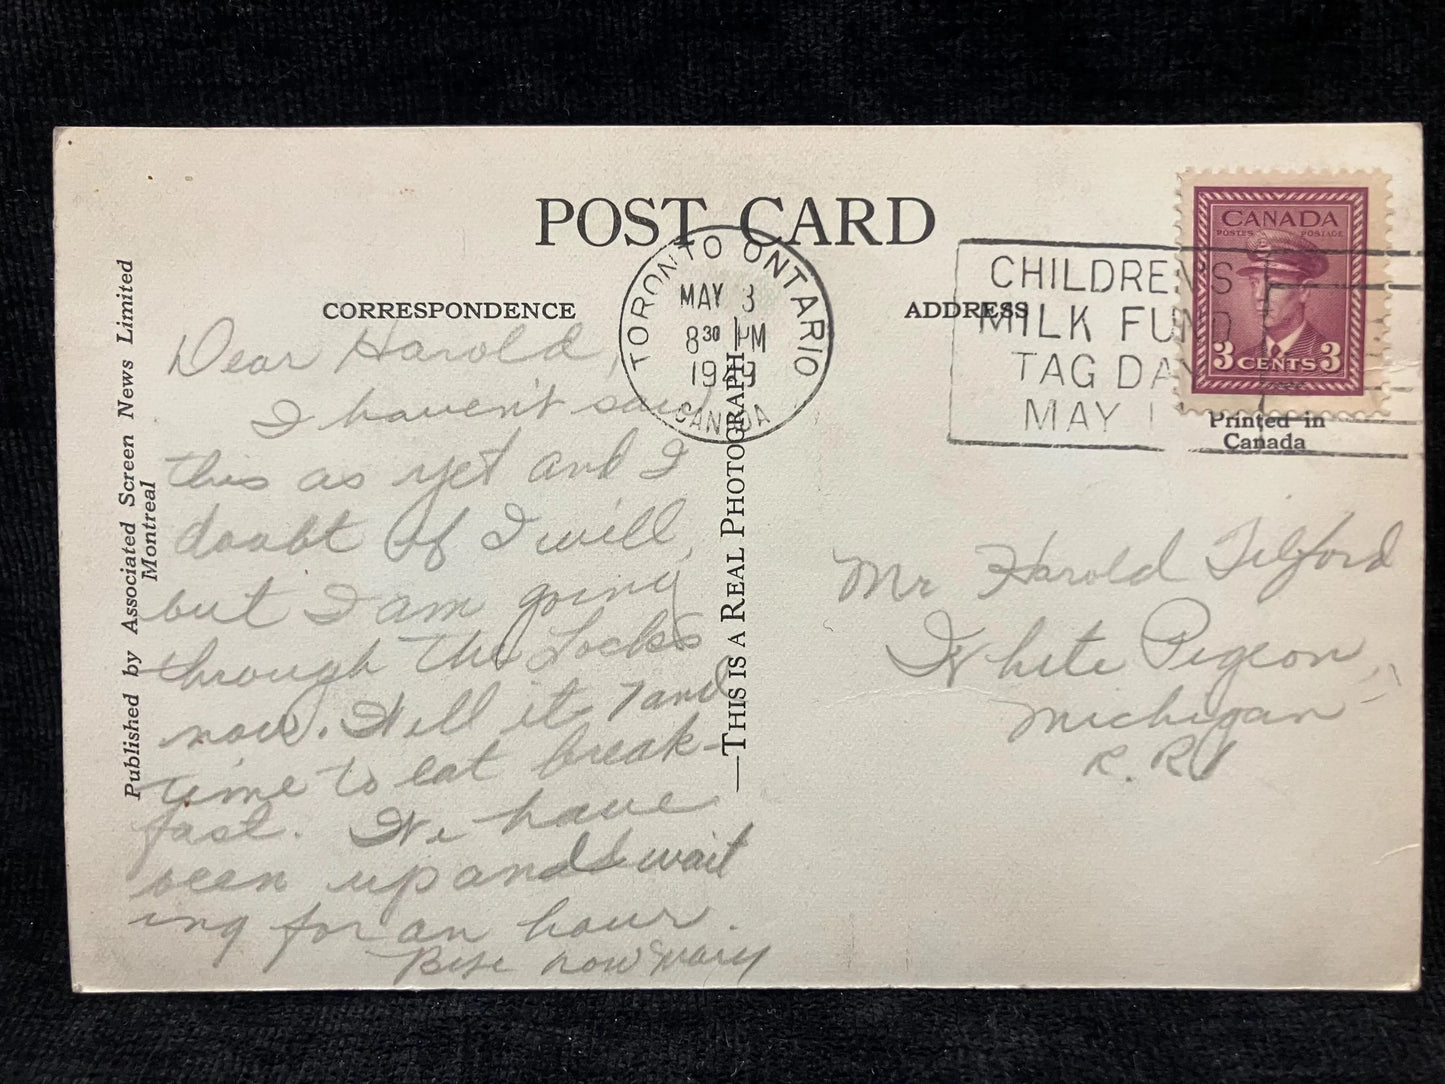 POST CARD
CORRESPONDENCE
ADDRESS
Published by Associated Screen News Limited
Montreal
—THIS IS A REAL PHOTOGRAPH
TORONTO ONTARIO
MAY 3
8 30 PM
1949
CANADA
CHILDREN'S
MILK FUND
TAG DAY
MAY
CANADA
POSTES POSTAGE
3 CENTS 3
Printed in
Canada
Dear Harold,
I haven't said
this as yet and I
doubt if I will,
but I am going
through the Locks
now. Well its 7 and
time to eat break-
fast. We have
been up and wait
ing for an hour.
Bye now Mary
Mr Harold Tilford
White Pigeon,
Michigan
R. R 1